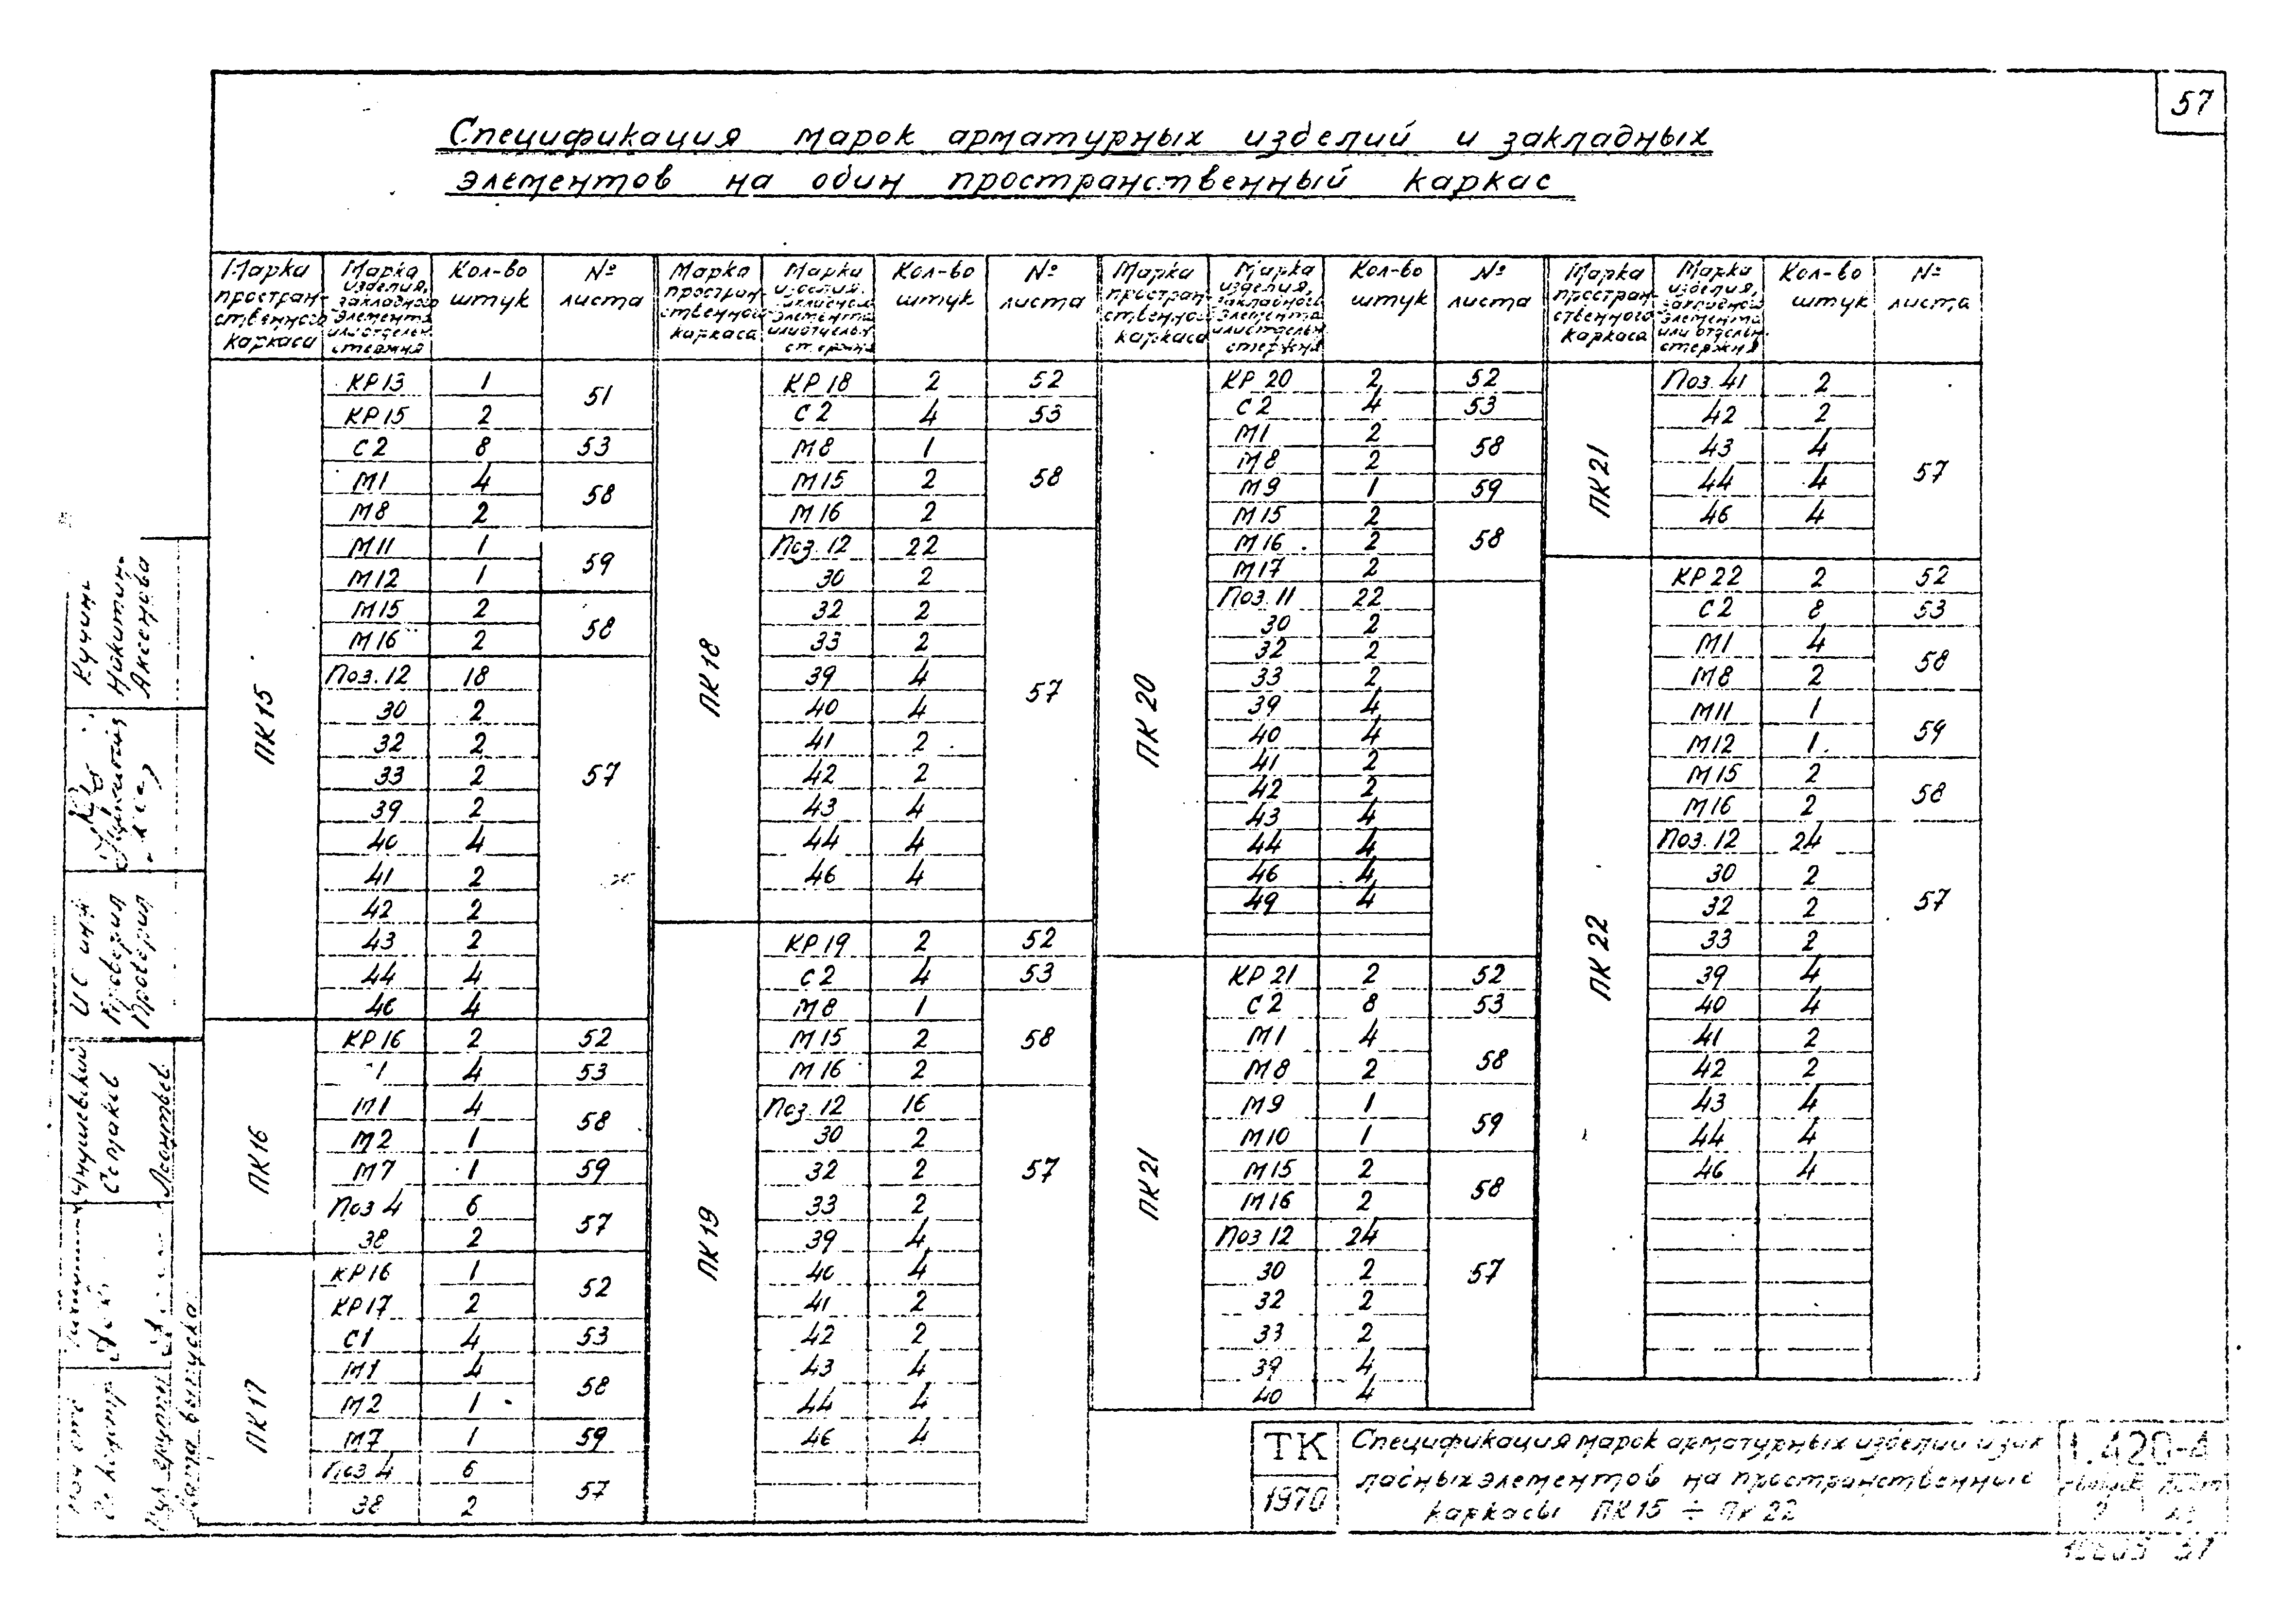 57
Спецификация марок арматурных изделий и закладных
элементов на один пространственный каркас
Марка простран-ственного каркаса | Марка изделия, закладного элемента или отдельн. стержня | Кол-во штук | № листа
ПК 15
КР 13 1 51
КР 15 2
С 2 8 53
М1 4 58
М8 2
М11 1 59
М12 1
М15 2 58
М16 2
Поз. 12 18 57
30 2
32 2
33 2
39 2
40 4
41 2
42 2
43 2
44 4
46 4
ПК 16
КР 16 2 52
1 4 53
М1 4 58
М2 1
М7 1 59
Поз 4 6 57
38 2
ПК 17
КР 16 1 52
КР 17 2
С1 4 53
М1 4 58
М2 1
М7 1 59
Поз 4 6 57
38 2
Марка простран-ственного каркаса | Марка изделия, закладного элемента или отдельн. стержня | Кол-во штук | № листа
ПК 18
КР 18 2 52
С 2 4 53
М8 1 58
М15 2
М16 2
Поз. 12 22 57
30 2
32 2
33 2
39 4
40 4
41 2
42 2
43 4
44 4
46 4
ПК 19
КР 19 2 52
С 2 4 53
М8 1 58
М15 2
М16 2
Поз. 12 16 57
30 2
32 2
33 2
39 4
40 4
41 2
42 2
43 4
44 4
46 4
Марка простран-ственного каркаса | Марка изделия, закладного элемента или отдельн. стержня | Кол-во штук | № листа
ПК 20
КР 20 2 52
С 2 4 53
М1 2 58
М8 2
М9 1 59
М15 2 58
М16 2
М17 2
Поз. 11 22
30 2
32 2
33 2
39 4
40 4
41 2
42 2
43 4
44 4
46 4
49 4
ПК 21
КР 21 2 52
С 2 8 53
М1 4 58
М8 2
М9 1 59
М10 1
М15 2 58
М16 2
Поз 12 24 57
30 2
32 2
33 2
39 4
40 4
Марка простран-ственного каркаса | Марка изделия, закладного элемента или отдельн. стержня | Кол-во штук | № листа
ПК 21
Поз. 41 2 57
42 2
43 4
44 4
46 4
ПК 22
КР 22 2 52
С 2 8 53
М1 4 58
М8 2
М11 1 59
М12 1
М15 2 58
М16 2
Поз. 12 24 57
30 2
32 2
33 2
39 4
40 4
41 2
42 2
43 4
44 4
46 4
ТК
1970
Спецификация марок арматурных изделий и зак
ладных элементов на пространственные
каркасы ПК 15 ÷ ПК 22
1.420-4
Никитин
Аксенова
Проверил
Проверил
Леонтьев
Дата выпуска
57